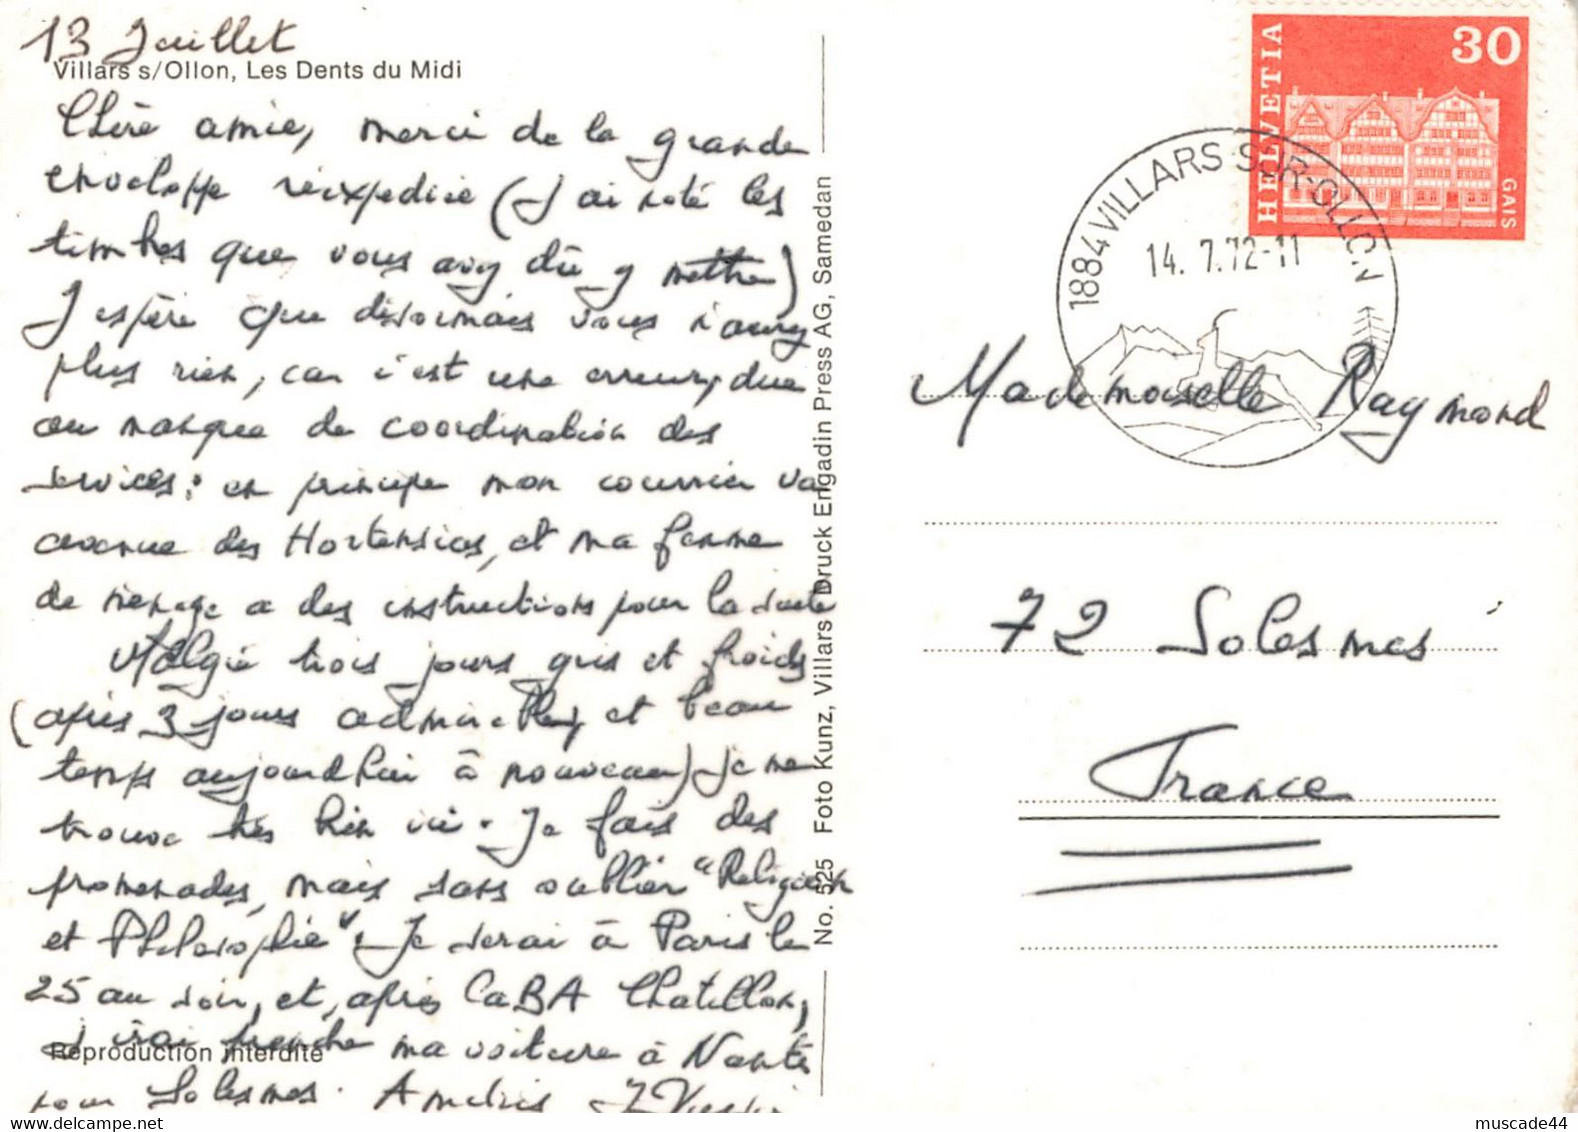 13 Juillet
Villars s/Ollon, Les Dents du Midi
Chère amie, merci de la grande
enveloppe réexpédiée (J'ai noté les
timbres que vous avez dû y mettre)
J'espère que désormais vous n'aurez
plus rien, car c'est une erreur, due
au manque de coordination des
services : en principe mon courrier va
avenue des Hortensias, et ma femme
de ménage a des instructions pour la suite
Malgré trois jours gris et froids
(après 3 jours admirables, et beau
temps aujourd'hui à nouveau) Je me
trouve très bien ici. Je fais des
promenades, mais sans oublier "Religion
et Philosophie". Je serai à Paris le
25 au soir, et, après CaBA Chatillon,
j'irai prendre ma voiture à Nantes
Reproduction interdite
pour Solesmes. Amitiés
No. 525 Foto Kunz, Villars Druck Engadin Press AG, Samedan
HELVETIA
30
GAIS
1884 VILLARS-SUR-OLLON
14.7.72-11
Mademoiselle Raymond
72 Solesmes
France
muscade44